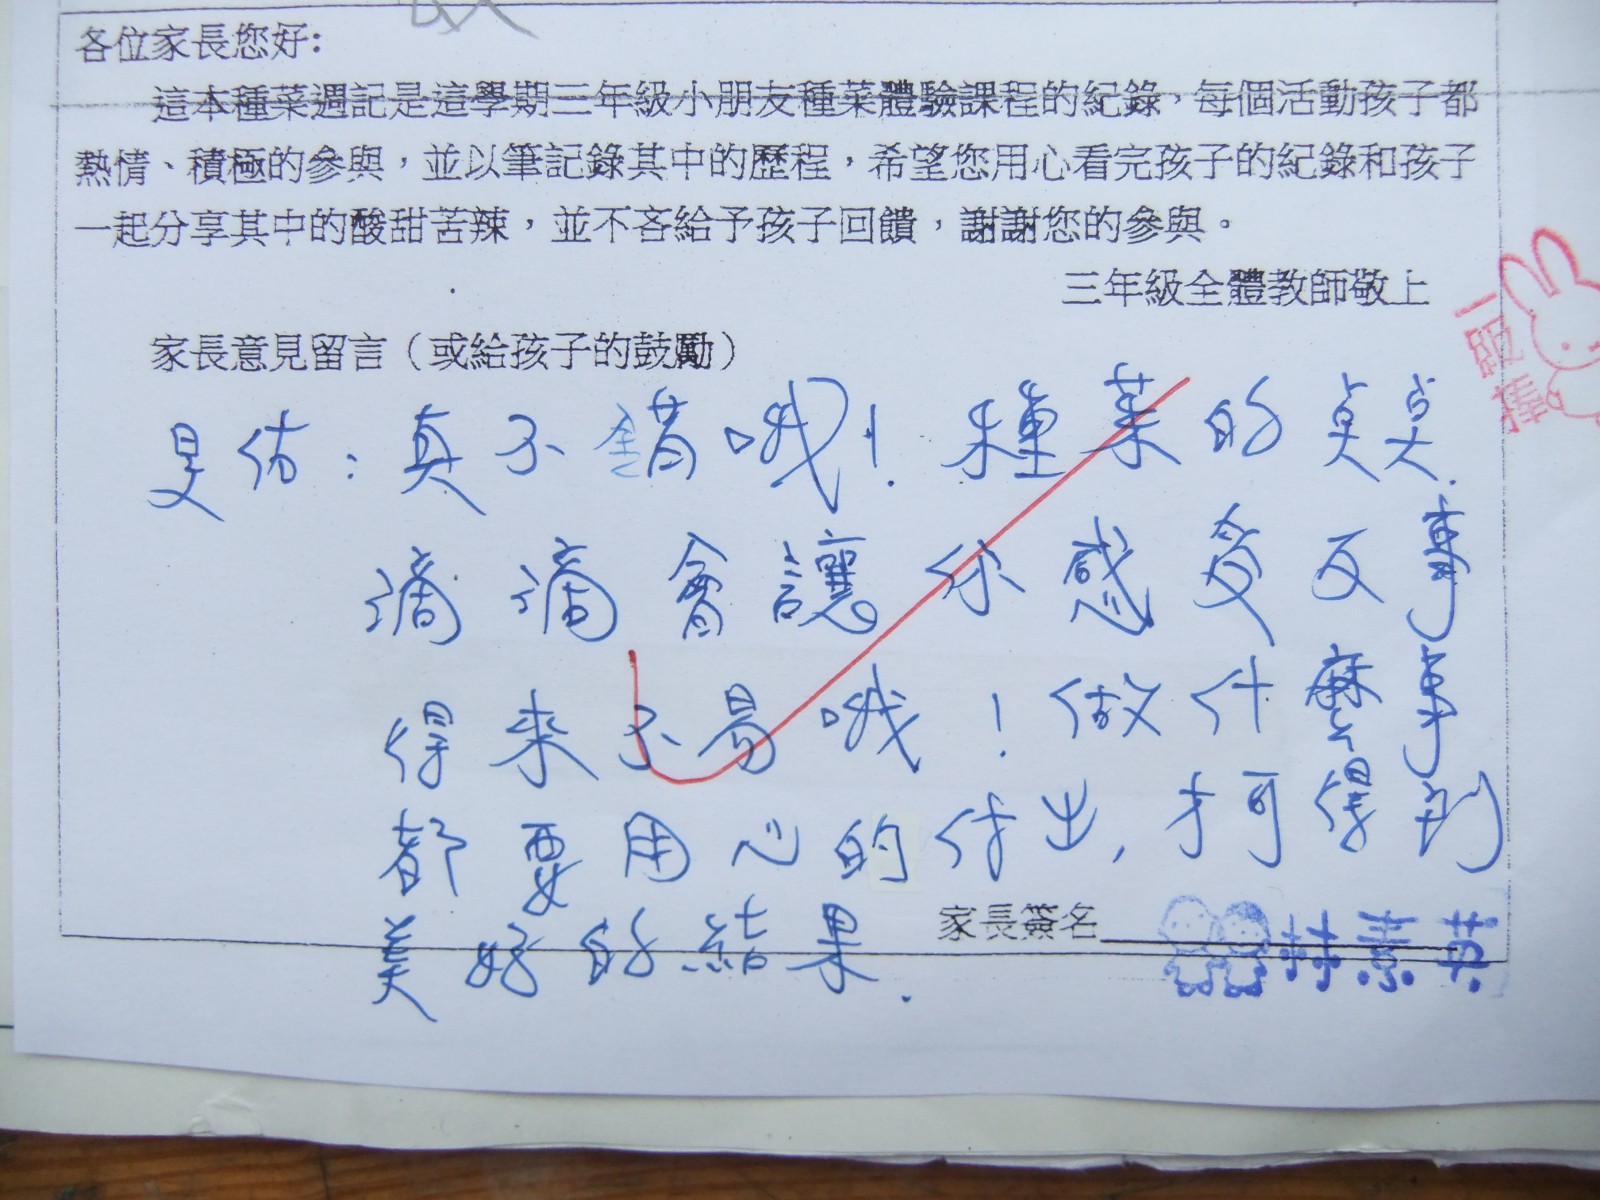 各位家長您好:
這本種菜週記是這學期三年級小朋友種菜體驗課程的紀錄，每個活動孩子都
熱情、積極的參與，並以筆記錄其中的歷程，希望您用心看完孩子的紀錄和孩子
一起分享其中的酸甜苦辣，並不吝給予孩子回饋，謝謝您的參與。
三年級全體教師敬上
家長意見留言（或給孩子的鼓勵）
昱佑：真不錯哦！種菜的點點
滴滴會讓你感受反事
得來不易哦！做什麼事
都要用心的付出，才可得到
美好的結果.
家長簽名 林素英
一級棒